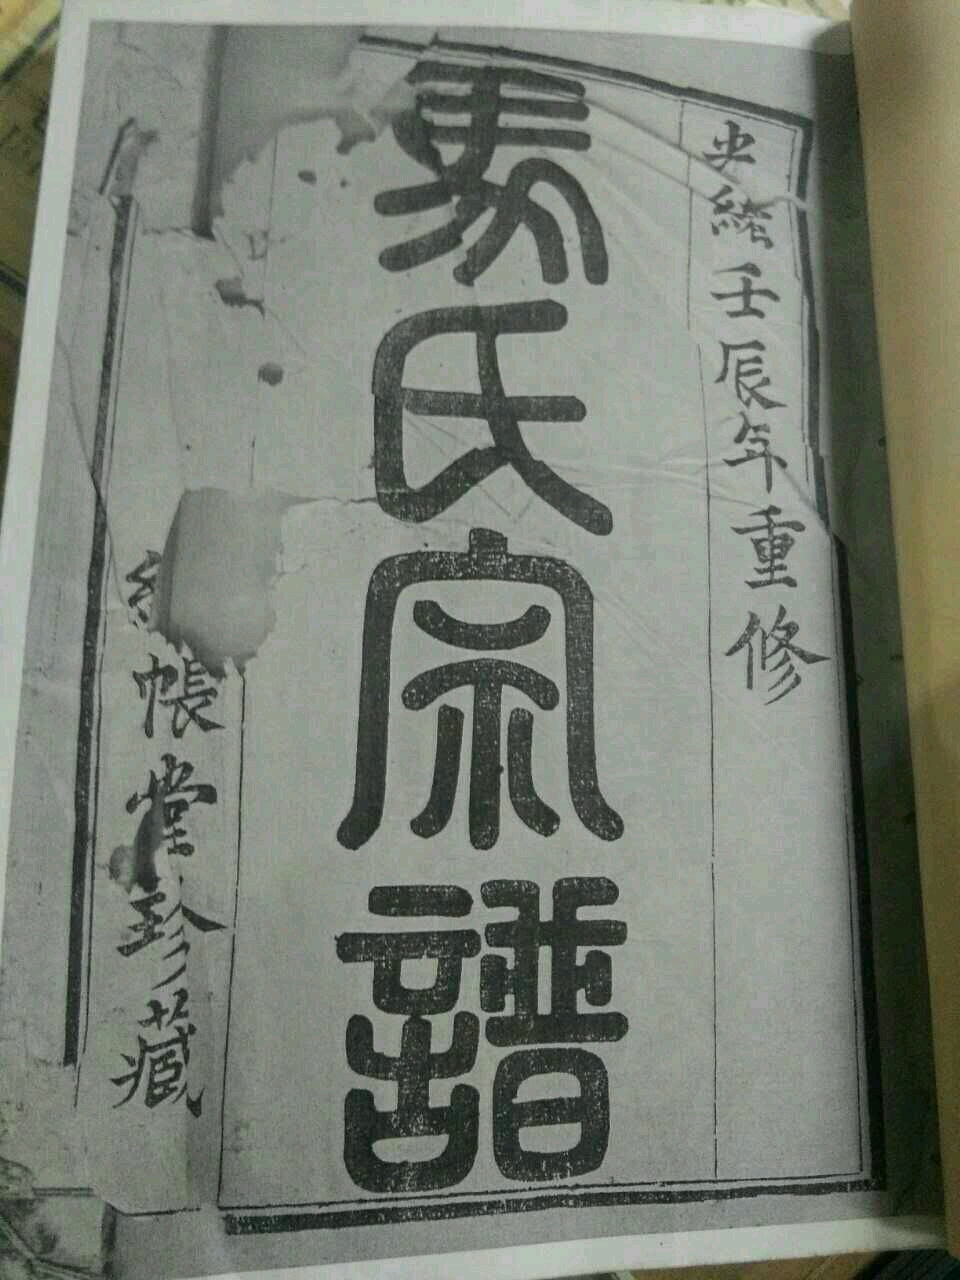 光緒壬辰年重修
馬氏宗譜
絳帳堂珍藏